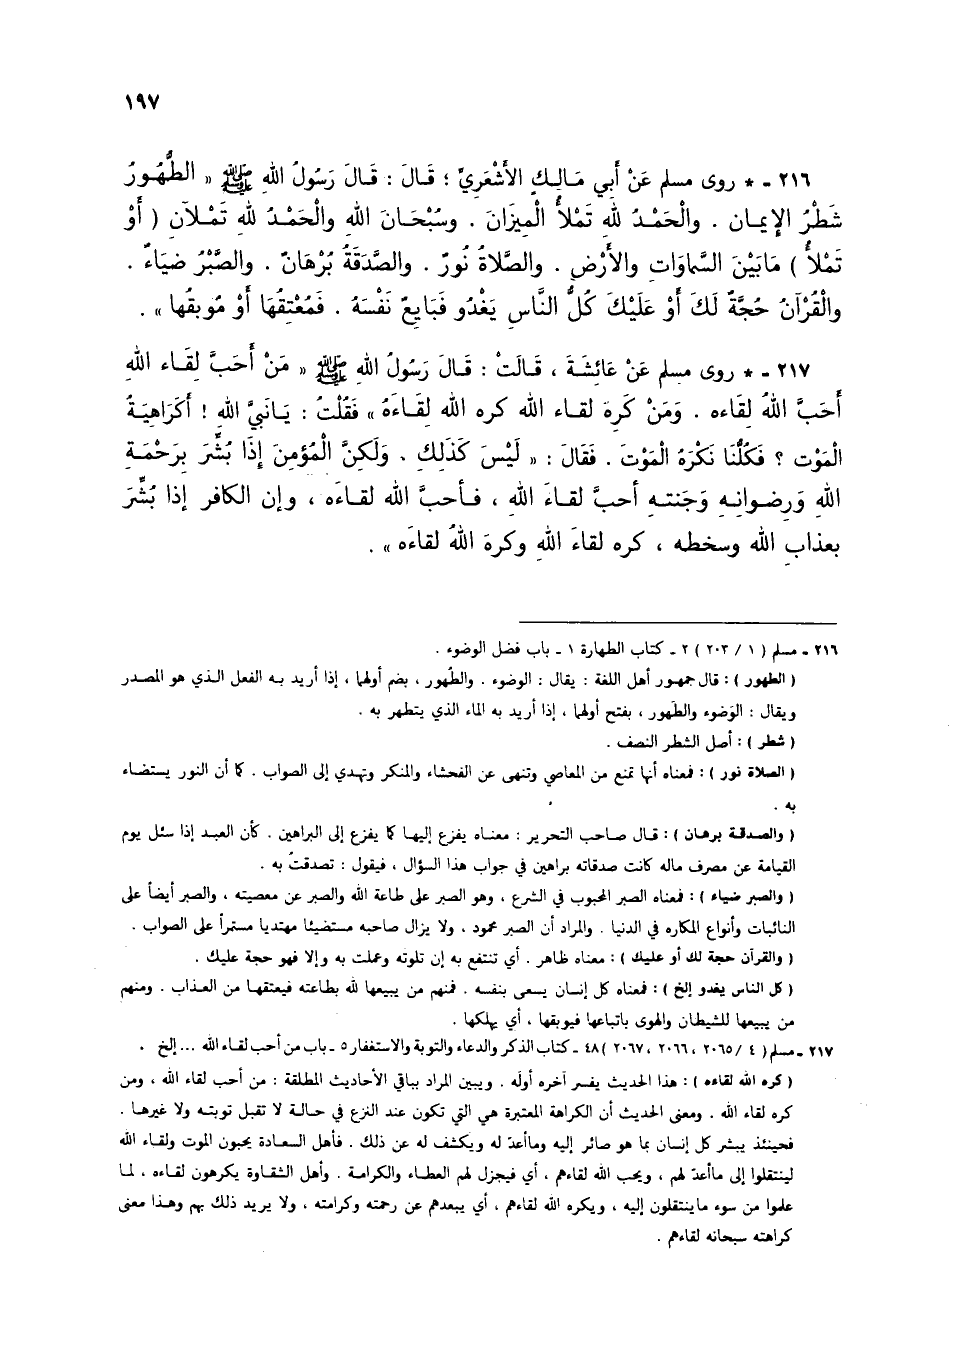 ١٩٧
٢١٦ - * روى مسلم عَنْ أَبي مَالِكٍ الأَشْعَرِيِّ ؛ قَالَ : قَالَ رَسُولُ اللهِ ﷺ « الطُّهُورُ
شَطْرُ الإِيمَان . والْحَمْدُ للهِ تَمْلأُ الْمِيزَانَ . وسُبْحَانَ اللهِ والْحَمْدُ للهِ تَمْلآنِ ( أَوْ
تَمْلأُ ) مَابَيْنَ السَّمَاوَاتِ والأَرْضِ . والصَّلاةُ نُورٌ . والصَّدَقَةُ بُرْهَانٌ . والصَّبْرُ ضِيَاءٌ .
والْقُرْآنُ حُجَّةٌ لَكَ أَوْ عَلَيْكَ كُلُّ النَّاسِ يَغْدُو فَبَايِعٌ نَفْسَهُ . فَمُعْتِقُهَا أَوْ مُوبِقُها » .
٢١٧ - * روى مسلم عَنْ عَائِشَةَ ، قَالَتْ : قَالَ رَسُولُ اللهِ ﷺ « مَنْ أَحَبَّ لِقَاء اللهِ
أَحَبَّ اللهُ لِقَاءه . وَمَنْ كَرِهَ لقـاء الله كره الله لِقَاءَهُ » فَقُلْتُ : يَـانَبيَّ اللهِ ! أَكَرَاهِيَةُ
الْمَوْتِ ؟ فَكُلُّنَا نَكْرَهُ الْمَوْتَ . فَقَالَ : « لَيْسَ كَذَلِكِ . وَلَكِنَّ الْمُؤمِنَ إِذَا بُشِّرَ بِرَحْمَةِ
اللهِ وَرِضوانِهِ وَجَنتهِ أحبَّ لقاءَ اللهِ ، فأحبَّ الله لقاءَه ، وإن الكافر إذا بُشِّرَ
بعذابِ الله وسخطه ، كره لقاءَ اللهِ وكرهَ اللهُ لقاءَه » .
٢١٦ - مسلم ( ١ / ٢٠٣ ) ٢ - كتاب الطهارة ١ - باب فضل الوضوء .
( الطهور ) : قال جمهور أهل اللغة : يقال : الوضوء . والطُهور ، بضم أولهما ، إذا أريد بـه الفعل الـذي هو المصدر
ويقال : الوَضوء والطَهور ، بفتح أولهما ، إذا أريد به الماء الذي يتطهر به .
( شطر ) : أصل الشطر النصف .
( الصلاة نور ) : فمعناه أنها تمنع من المعاصي وتنهى عن الفحشاء والمنكر وتهدي إلى الصواب . كما أن النور يستضاء
به .
( والصدقة برهان ) : قال صاحب التحرير : معناه يفزع إليها كما يفزع إلى البراهين . كأن العبد إذا سئل يوم
القيامة عن مصرف ماله كانت صدقاته براهين في جواب هذا السؤال ، فيقول : تصدقتُ به .
( والصبر ضياء ) : فمعناه الصبر المحبوب في الشرع ، وهو الصبر على طاعة الله والصبر عن معصيته ، والصبر أيضاً على
النائبات وأنواع المكاره في الدنيا . والمراد أن الصبر محمود ، ولا يزال صاحبه مستضيئا مهتديا مستمراً على الصواب .
( والقرآن حجة لك أو عليك ) : معناه ظاهر . أي تنتفع به إن تلوته وعملت به وإلا فهو حجة عليك .
( كل الناس يغدو إلخ ) : فمعناه كل إنسان يسعى بنفسه . فمنهم من يبيعها لله بطاعته فيعتقها من العذاب . ومنهم
من يبيعها للشيطان والهوى باتباعها فيوبقها ، أي يهلكها .
٢١٧ - مسلم ( ٤ / ٢٠٦٥ ، ٢٠٦٦ ، ٢٠٦٧ ) ٤٨ - كتاب الذكر والدعاء والتوبة والاستغفار ٥ - باب من أحب لقاء الله ... إلخ .
( كره الله لقاءه ) : هذا الحديث يفسر آخره أوله . ويبين المراد بباقي الأحاديث المطلقة : من أحب لقاء الله ، ومن
كره لقاء الله . ومعنى الحديث أن الكراهة المعتبرة هي التي تكون عند النزع في حالة لا تقبل توبته ولا غيرها .
فحينئذ يبشر كل إنسان بما هو صائر إليه وماأعدّ له ويكشف له عن ذلك . فأهل السعادة يحبون الموت ولقاء الله
لينتقلوا إلى ماأعدّ لهم ، ويحب الله لقاءهم ، أي فيجزل لهم العطاء والكرامة . وأهل الشقاوة يكرهون لقاءه ، لما
علموا من سوء ماينتقلون إليه ، ويكره الله لقاءهم ، أي يبعدهم عن رحمته وكرامته ، ولا يريد ذلك بهم وهذا معنى
كراهته سبحانه لقاءهم .